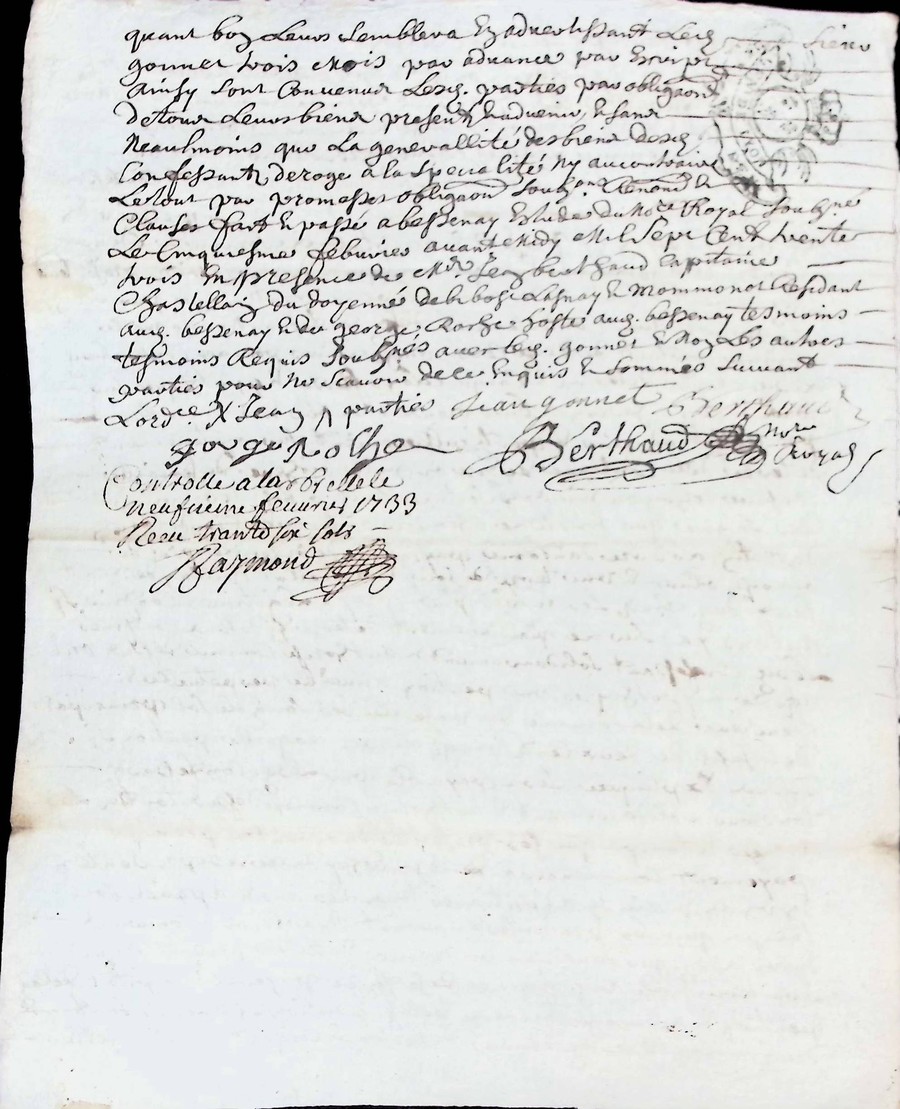 quant bon Leurs Semblera En advertissant Led. Sieur
gonnet trois Mois par advance par Escript
Ainsy Sont Convenus Lesd. parties par obligaon
de tous Leurs biens presents & advenir, & Sans
Neaulmoins que La generallité des biens desd.
Confessants deroge a la Specialité Ny au contraire
Le tout par promesses obligaon Soubz.ons Renonc.
Clauses fait & passé a bessenay Estude du No.re Royal Soubz.ne
Le Cinquiesme febvrier avant Midy Mil Sept Cent trente
trois En presence de M.re Jean berthaud Capitaine
Chastellain du doyenné de Lasnay & Mommonot Residant
aud. bessenay & de george Roche hoste aud. bessenay tesmoins
tesmoins Requis Soubznés avec led. gonnet & Non Les autres
parties pour Ne Scavoir de ce Enquis & Sommés Suivant
Lord.ce X Jean /\ parties Jean gonnet Berthaud
george Rothe Berthaud No.re
Royal
Controlle a larbrelle le
neufvieme fevrier 1733
Receu trante six sols
Raymond